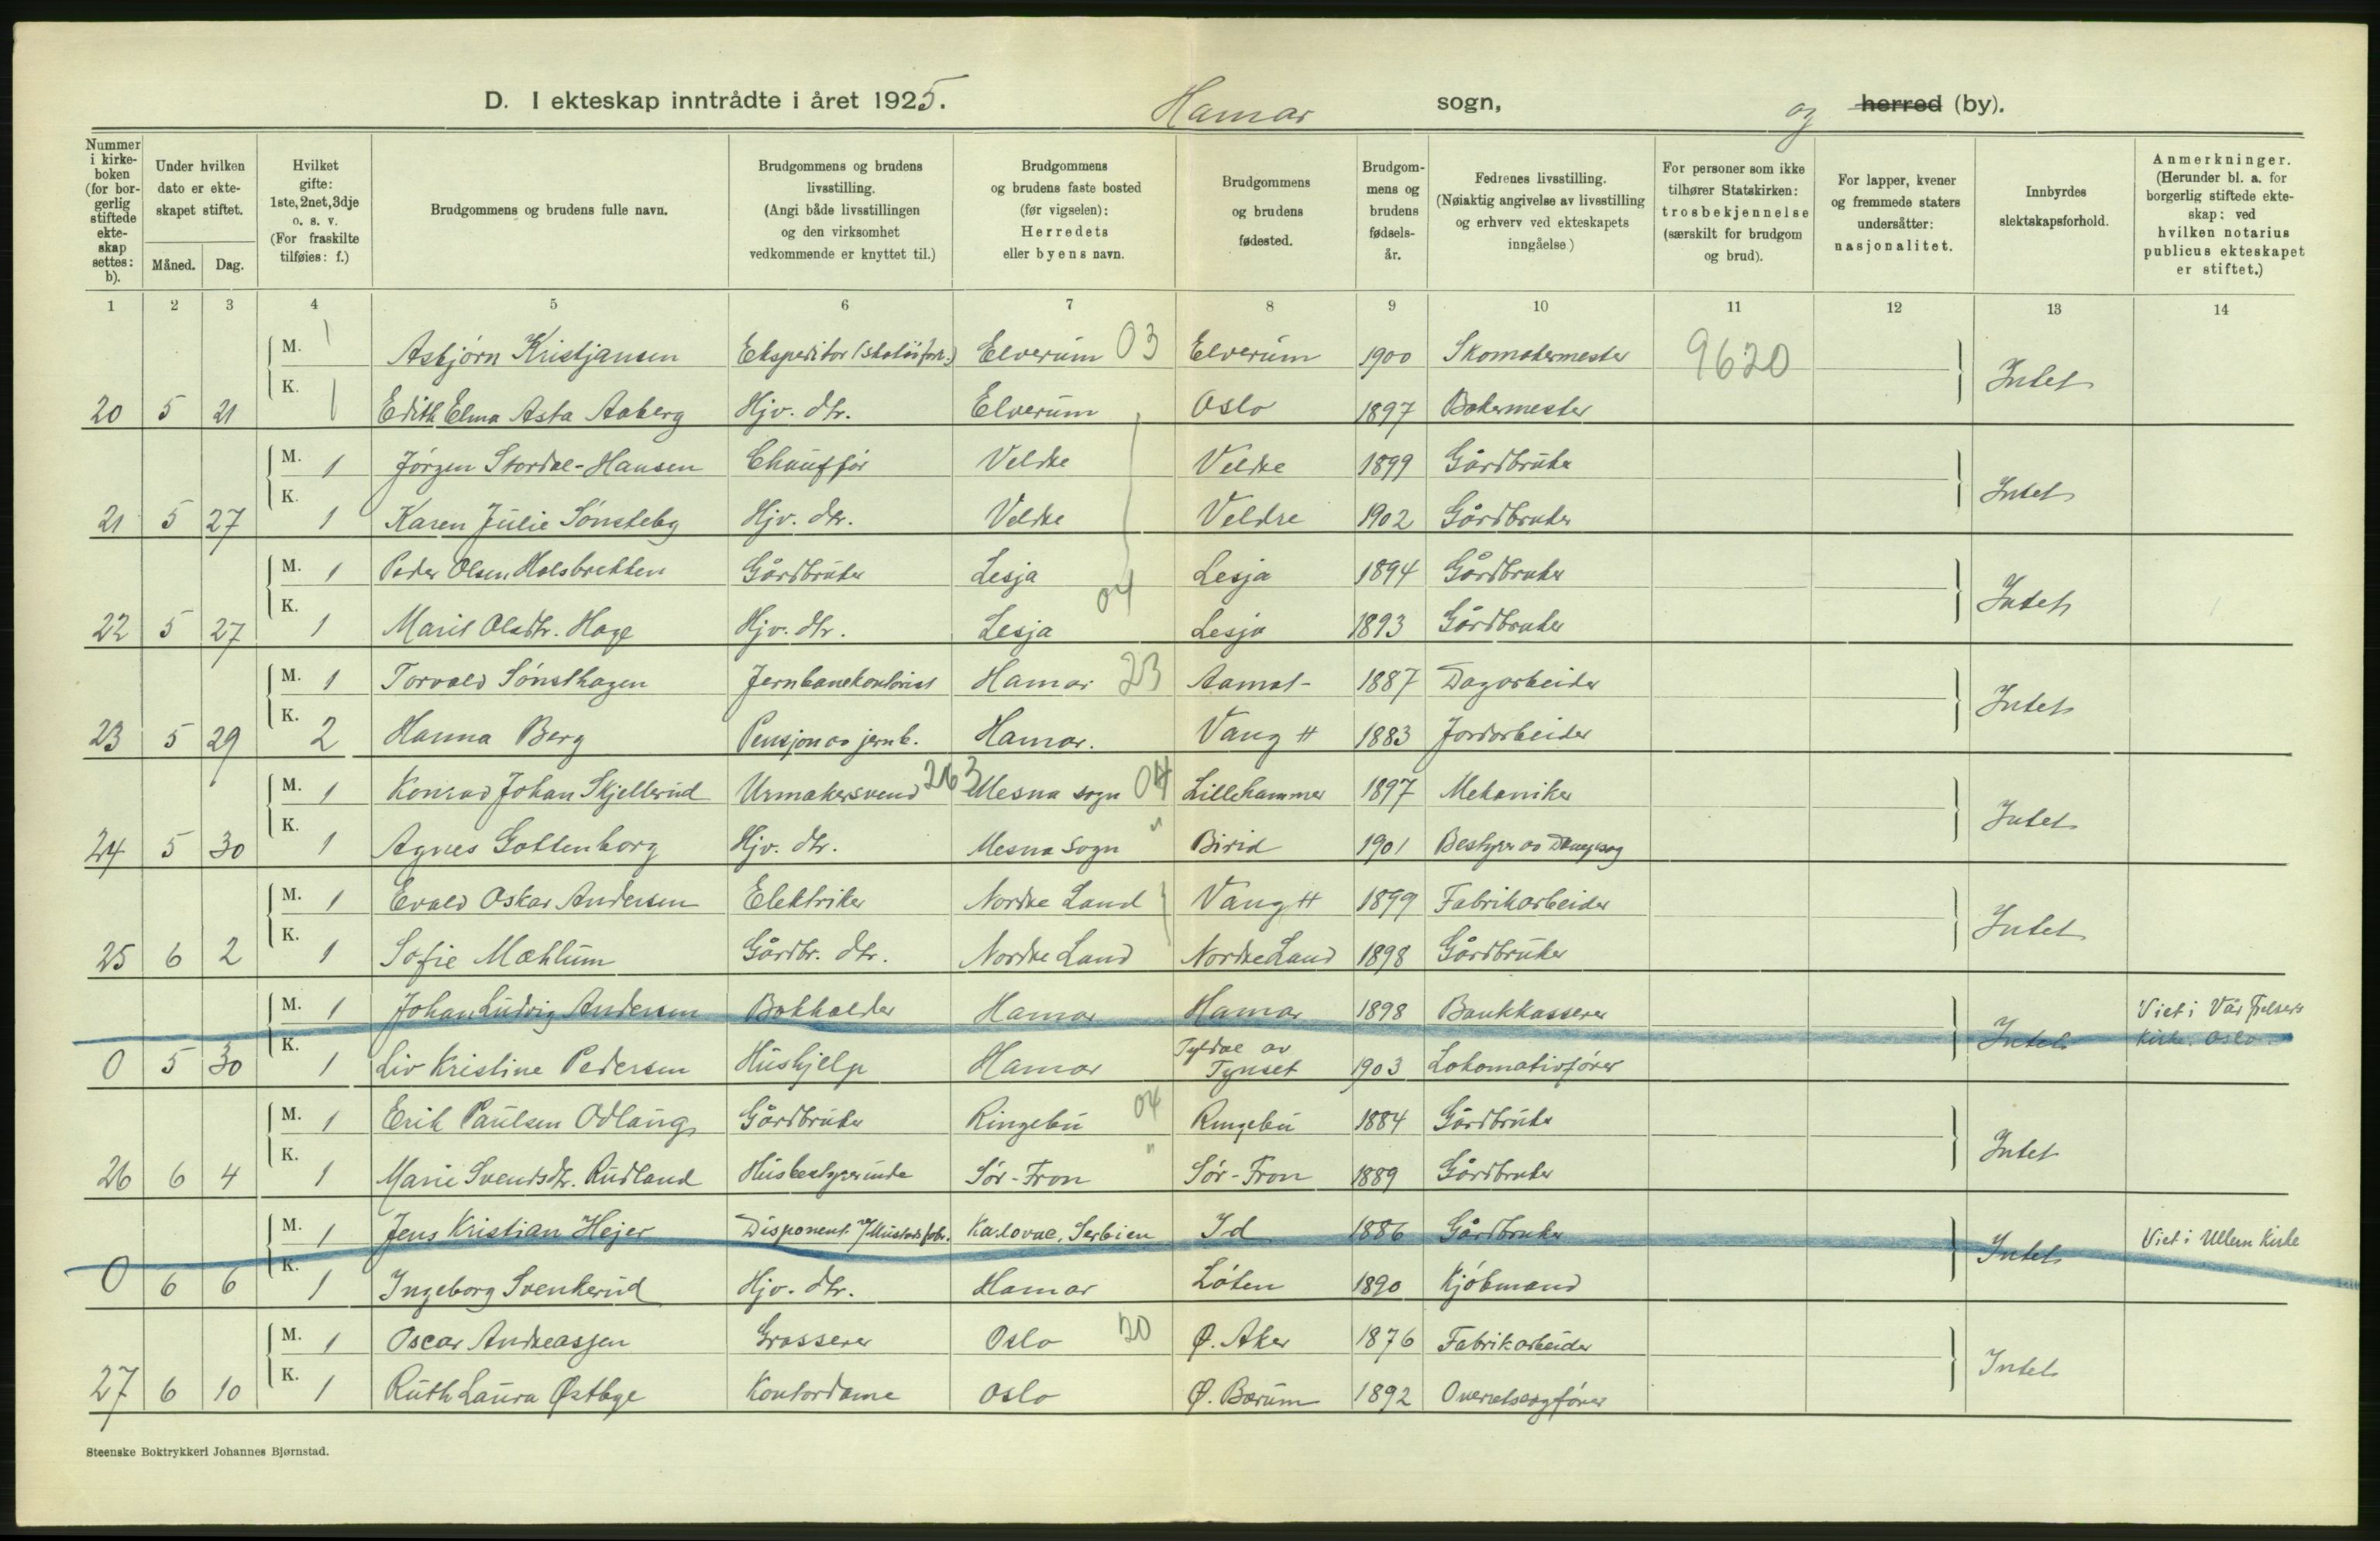 D. I ekteskap inntrådte i året 1925. Hamar sogn, og herred (by).
Nummer i kirkeboken (for borgerlig stiftede ekteskap settes: b).
Under hvilken dato er ekteskapet stiftet.
Måned. Dag.
Hvilket gifte: 1ste, 2net, 3dje o. s. v. (For fraskilte tilføies: f.)
Brudgommens og brudens fulle navn.
Brudgommens og brudens livsstilling. (Angi både livsstillingen og den virksomhet vedkommende er knyttet til.)
Brudgommens og brudens faste bosted (før vigselen): Herredets eller byens navn.
Brudgommens og brudens fødested.
Brudgommens og brudens fødselsår.
Fedrenes livsstilling. (Nøiaktig angivelse av livsstilling og erhverv ved ekteskapets inngåelse)
For personer som ikke tilhører Statskirken: trosbekjennelse (særskilt for brudgom og brud).
For lapper, kvener og fremmede staters undersåtter: nasjonalitet.
Innbyrdes slektskapsforhold.
Anmerkninger. (Herunder bl. a. for borgerlig stiftede ekteskap: ved hvilken notarius publicus ekteskapet er stiftet.)
1 2 3 4 5 6 7 8 9 10 11 12 13 14
M. 1 Asbjørn Kristjansen Ekspeditor Elverum 03 Elverum 1900 Skomakermester 9620
20 5 21 K. 1 Edith Elma Asta Aaberg Hjv. dtr. Elverum Oslo 1897 Bakermester Intet
M. 1 Jørgen Stordal-Hansen Chauffør Veldre Veldre 1899 Gårdbruker
21 5 27 K. 1 Karen Julie Sønsteby Hjv. dtr. Veldre Veldre 1902 Gårdbruker Intet
M. 1 Peder Olsen Holsbrekken Gårdbruker Lesja 04 Lesja 1894 Gårdbruker
22 5 27 K. 1 Marit Olsdtr. Hage Hjv. dtr. Lesja Lesja 1893 Gårdbruker Intet
M. 1 Torvald Sønsthagen Jernbanekontorist Hamar 23 Aamot 1887 Dagarbeider
23 5 29 K. 2 Hanna Berg Pensjon av jernb. Hamar. Vang H 1883 Jordarbeider Intet
M. 1 Konrad Johan Skjellerud Urmakersvend 263 Mesna sogn 04 Lillehammer 1897 Mekaniker
24 5 30 K. 1 Agnes Gottenborg Hjv. dtr. Mesna sogn " Birid 1901 Bestyrer av Dampsag Intet
M. 1 Evald Oskar Andersen Elektriker Nordre Land Vang H 1899 Fabrikarbeider
25 6 2 K. 1 Sofie Mæhlum Gårdbr. dtr. Nordre Land Nordre Land 1898 Gårdbruker Intet
M. 1 Johan Ludvig Andersen Bokholder Hamar Hamar 1898 Bankkasserer Viet i Vår Frelsers
0 5 30 K. 1 Liv Kristine Pedersen Hushjelp Hamar Tyldal av Tynset 1903 Lokomotivfører Intet Kirke. Oslo.
M. 1 Erik Paulsen Odlaug Gårdbruker Ringebu 04 Ringebu 1884 Gårdbruker
26 6 4 K. 1 Marie Svendsdtr. Rudland Husbestyrerinde Sør-Fron " Sør-Fron 1889 Gårdbruker Intet
M. 1 Jens Kristian Hejer Disponent v/Mustads fabr. Karlovac, Serbien Id 1886 Gårdbruker Viet i Ullern Kirke
0 6 6 K. 1 Ingeborg Svenkerud Hjv. dtr. Hamar Løten 1890 Kjøbmand Intet
M. 1 Oscar Andreassen Grosserer Oslo 20 Ø. Aker 1876 Fabrikarbeider
27 6 10 K. 1 Ruth Laura Østbye Kontordame Oslo Ø. Bærum 1892 Overretssagfører Intet
Steenske Boktrykkeri Johannes Bjørnstad.